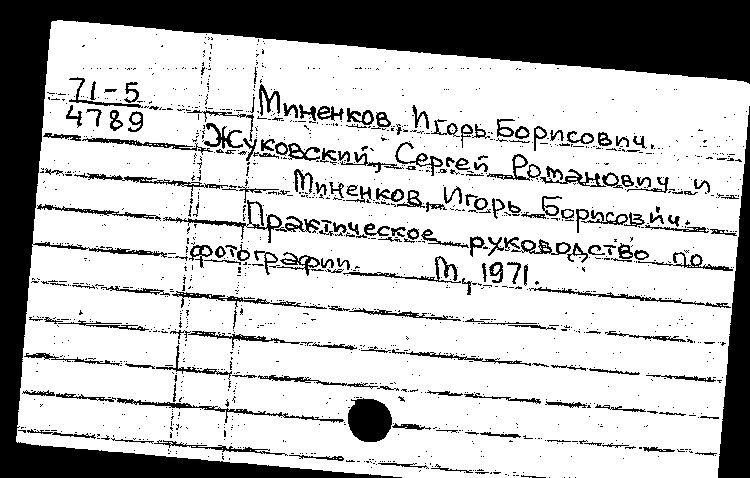 71-5
4789
Миненков, Игорь Борисович.
Жуковский, Сергей Романович и
Миненков, Игорь Борисович.
Практическое руководство по
фотографии. М., 1971.